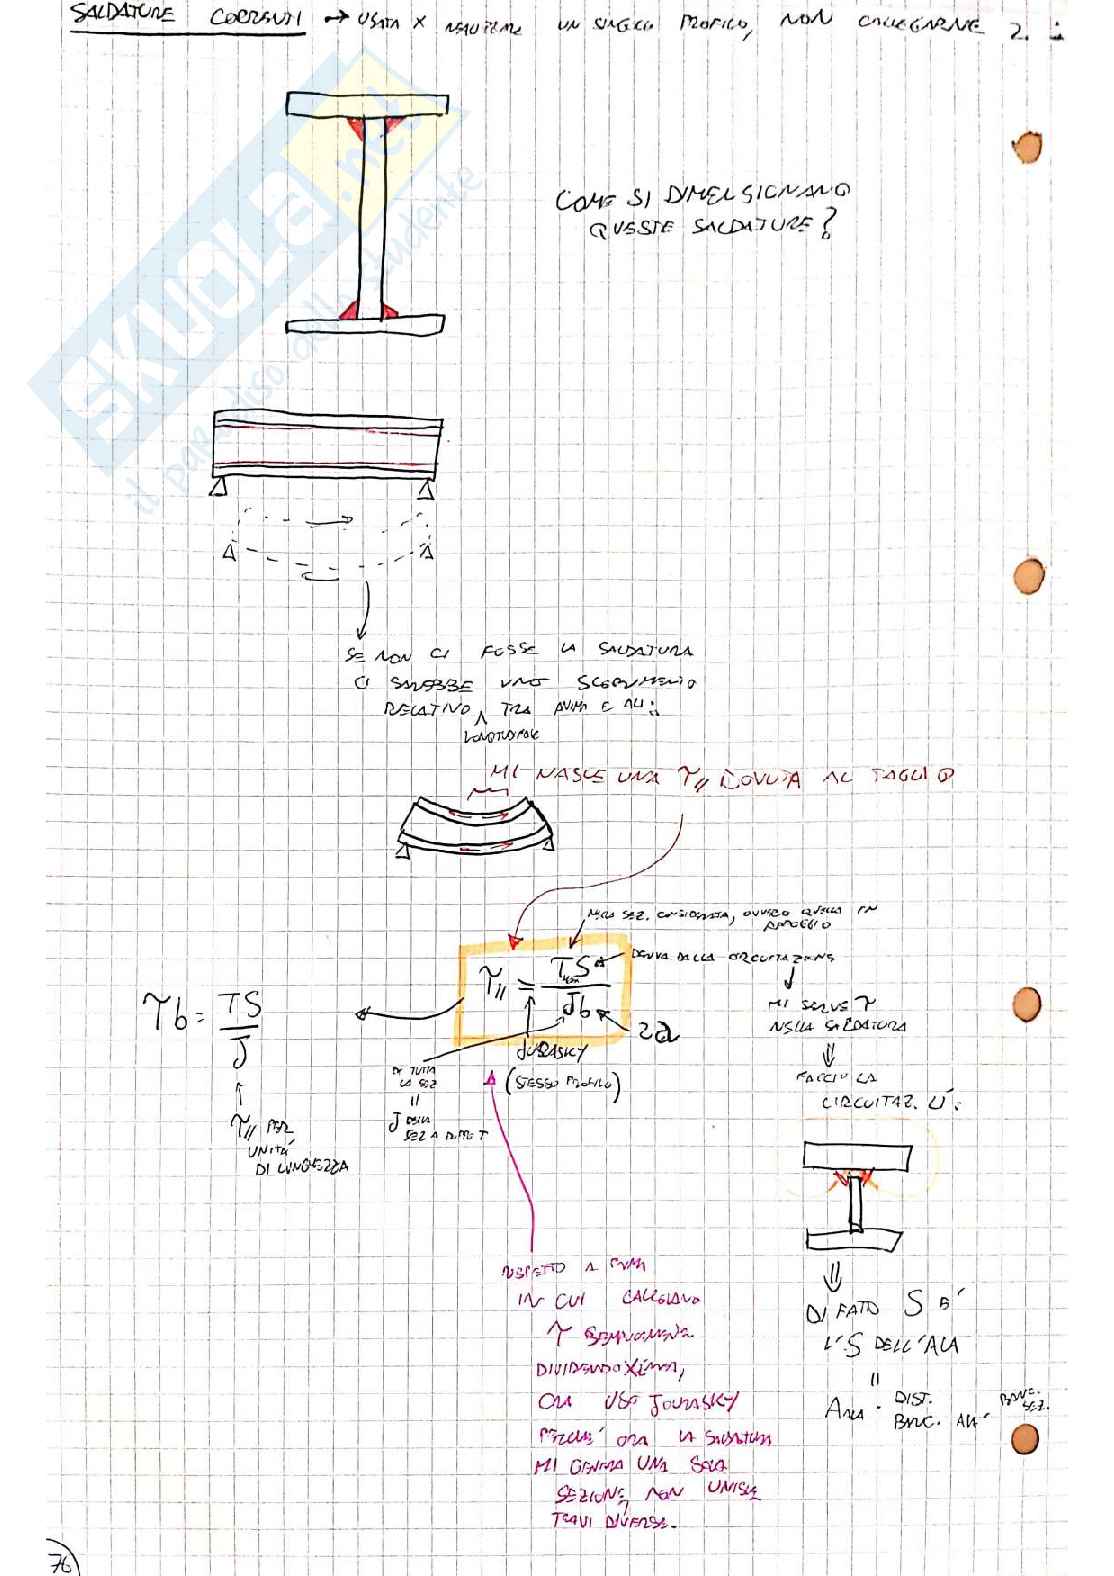 SALDATURE CORRENTI → USATA X REALIZZARE UN SINGOLO PROFILO, NON COLLEGARNE 2.
COME SI DIMENSIONANO
QUESTE SALDATURE?
SKUOLA.net
il paradiso dello studente
SE NON CI FOSSE LA SALDATURA
CI SAREBBE UNO SCORRIMENTO
RELATIVO TRA ANIMA E ALI
LONGITUDINALE
MI NASCE UNA τ// DOVUTA AL TAGLIO
NELLA SEZ. CONSIDERATA, OVVERO QUELLA IN
APPOGGIO
τ// = T S / J b
DERIVA DALLA CIRCUITAZIONE
2a
JOURASKY
(STESSO PROFILO)
τb = TS / J
τ// PER
UNITÀ
DI LUNGHEZZA
DI TUTTA
LA SEZ
=
J DELLA
SEZ A DOPPIO T
MI SERVE τ
NELLA SALDATURA
⇓
FACCIO LA
CIRCUITAZ. LÌ.
⇓
DI FATTO S È
L'S DELL'ALA
=
AREA · DIST.
BARIC. ALA BARIC. SEZ.
RISPETTO A PRIMA
IN CUI CALCOLAVO
τ SEMPLICEMENTE
DIVIDENDO X L'AREA,
ORA USO JOURASKY
PERCHÉ ORA LA SALDATURA
MI GENERA UNA SOLA
SEZIONE, NON UNISCE
TRAVI DIVERSE.
76